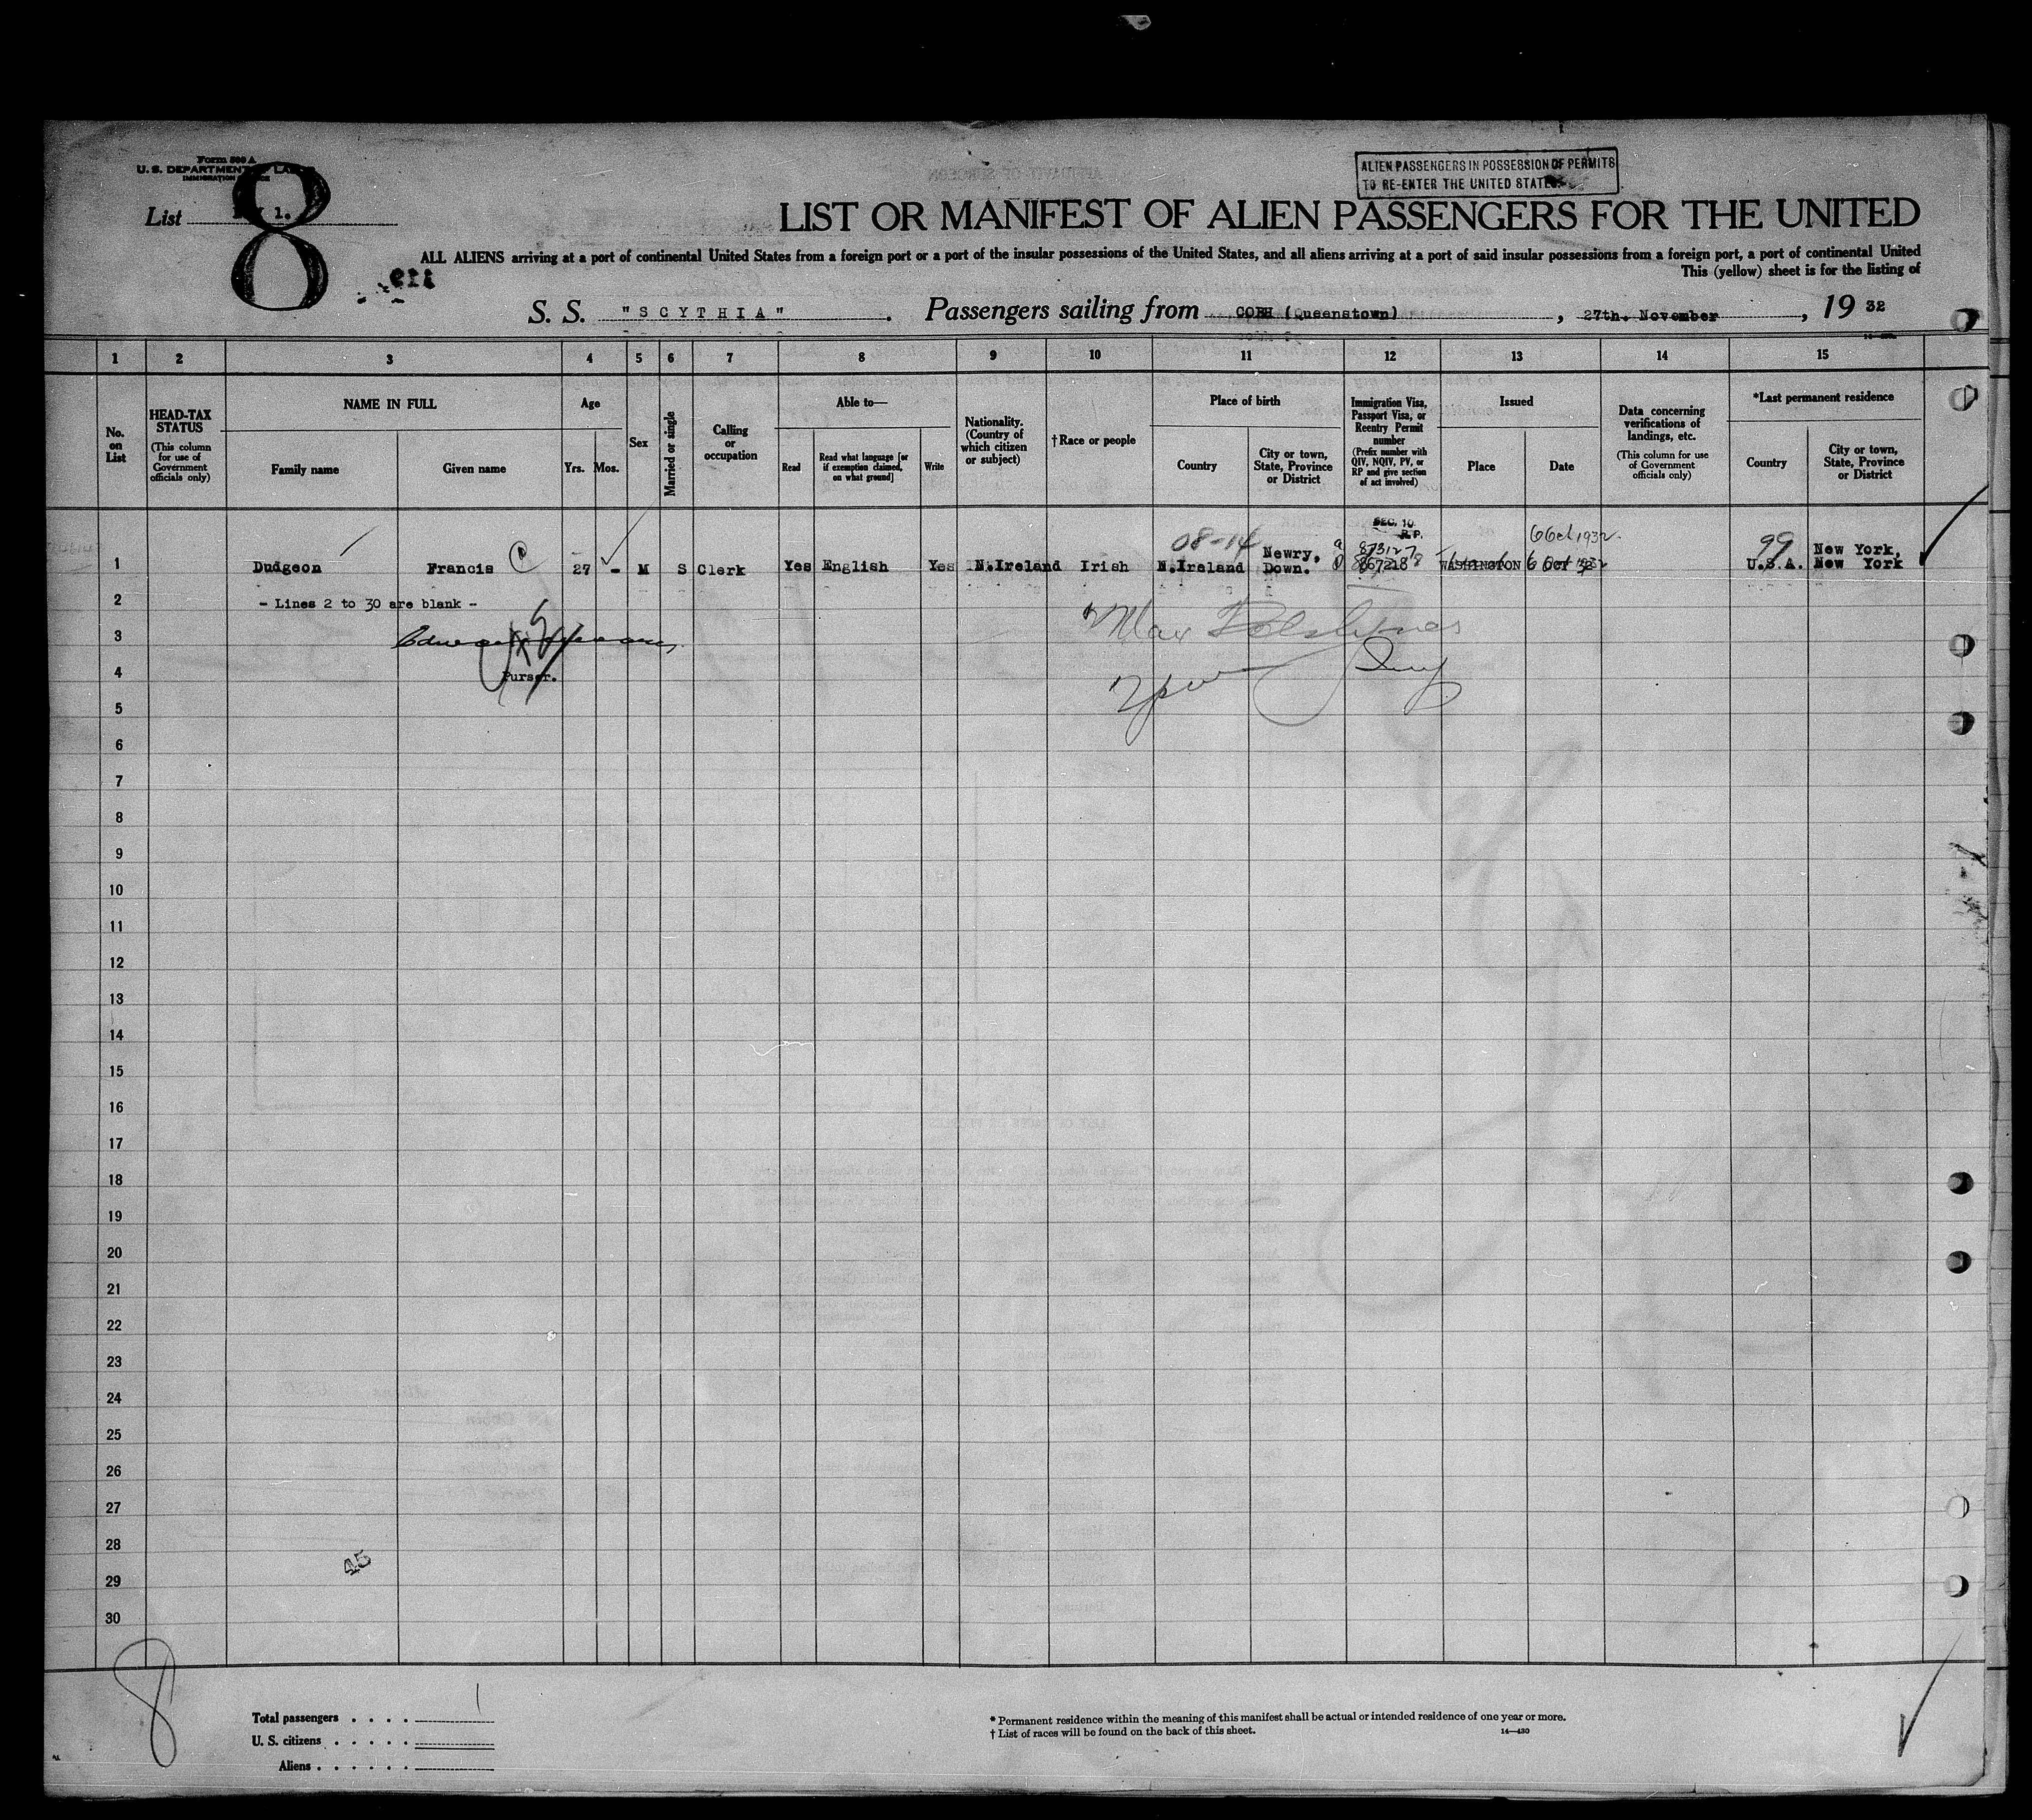 Form 500 A
U. S. DEPARTMENT OF LABOR
IMMIGRATION SERVICE
List 1.
8
ALIEN PASSENGERS IN POSSESSION OF PERMITS
TO RE-ENTER THE UNITED STATES
LIST OR MANIFEST OF ALIEN PASSENGERS FOR THE UNITED
ALL ALIENS arriving at a port of continental United States from a foreign port or a port of the insular possessions of the United States, and all aliens arriving at a port of said insular possessions from a foreign port, a port of continental United
This (yellow) sheet is for the listing of
S. S. "SCYTHIA" . Passengers sailing from COBH (Queenstown) , 27th. November , 19 32
1 2 3 4 5 6 7 8 9 10 11 12 13 14 15
No. on List
HEAD-TAX STATUS
(This column for use of Government officials only)
NAME IN FULL
Family name
Given name
Age
Yrs. Mos.
Sex
Married or single
Calling or occupation
Able to—
Read
Read what language [or if exemption claimed, on what ground]
Write
Nationality. (Country of which citizen or subject)
†Race or people
Place of birth
Country
City or town, State, Province or District
Immigration Visa, Passport Visa, or Reentry Permit number
(Prefix number with QIV, NQIV, PV, or RP and give section of act involved)
Issued
Place
Date
Data concerning verifications of landings, etc.
(This column for use of Government officials only)
*Last permanent residence
Country
City or town, State, Province or District
SEC. 10.
R.P.
6 Oct 1932.
08-14 873127 99
1 Dudgeon Francis 27 - M S Clerk Yes English Yes N.Ireland Irish N.Ireland Newry, Down. 867218 WASHINGTON 6 Oct U.S.A. New York, New York
2 - Lines 2 to 30 are blank -
3
4 Purser.
5
6
7
8
9
10
11
12
13
14
15
16
17
18
19
20
21
22
23
24
25
26
27
28
45
29
30
8
Total passengers . . . . 1
U. S. citizens . . . . .
Aliens . . . . . .
* Permanent residence within the meaning of this manifest shall be actual or intended residence of one year or more.
† List of races will be found on the back of this sheet. 14—430